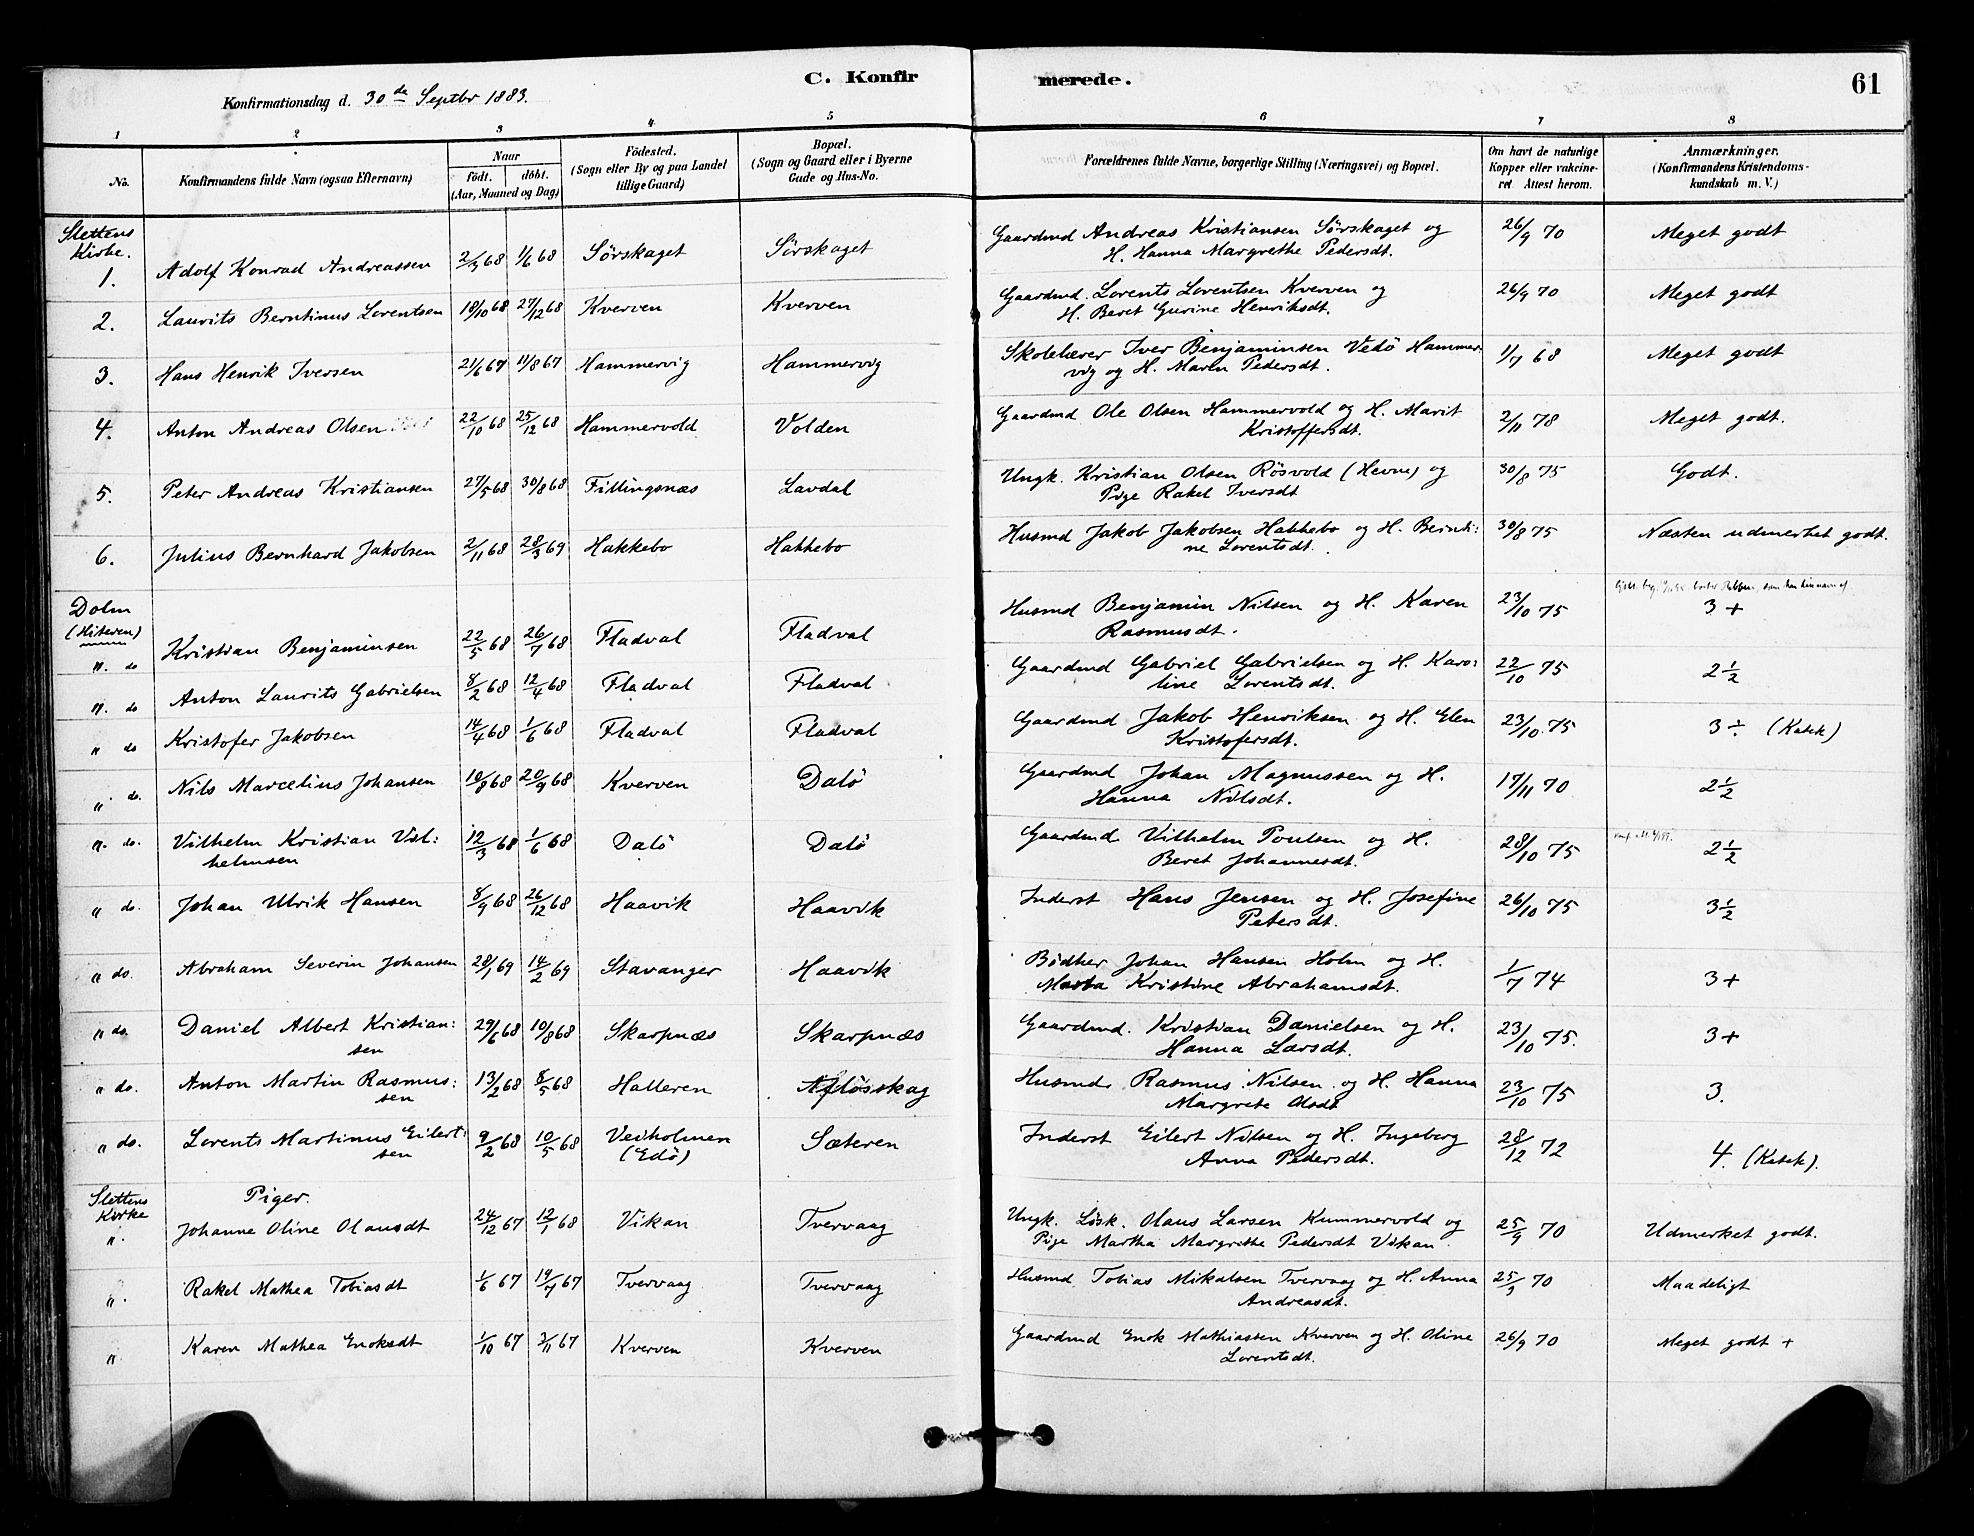 C. Konfirmerede.
61
Konfirmationsdag d. 30de Septbr 1883.
1 2 3 4 5 6 7 8
No.
Konfirmandens fulde Navn (ogsaa Efternavn)
Naar
födt. döbt.
(Aar, Maaned og Dag)
Födested.
(Sogn eller By og paa Landet
tillige Gaard)
Bopæl.
(Sogn og Gaard eller i Byerne
Gade og Hus-No.
Forældrenes fulde Navne, borgerlige Stilling (Næringsvei) og Bopæl.
Om havt de naturlige
Kopper eller vakcine-
ret. Attest herom.
Anmærkninger.
(Konfirmandens Kristendoms-
kundskab m. V.)
Slettens
Kirke.
1. Adolf Konrad Andreassen 2/3 68 1/6 68 Sörskaget Sörskaget Gaardmd Andreas Kristiansen Sörskaget og 26/9 70 Meget godt
H. Hanna Margrethe Pedersdt.
2. Laurits Berntinus Lorentsen 18/10 68 27/12 68 Kverven Kverven Gaardmd. Lorents Lorentsen Kverven og 26/9 70 Meget godt
H. Beret Gurine Henriksdt.
3. Hans Henrik Iversen 21/6 67 11/8 67 Hammervig Hammervig Skolelærer Iver Benjaminsen Vedö Hammer- 1/7 68 Meget godt
vig og H. Maren Pedersdt.
4. Anton Andreas Olsen 22/10 68 25/12 68 Hammervold Volden Gaardmd Ole Olsen Hammervold og H. Marit 2/11 78 Meget godt.
Kristoffersdt.
5. Peter Andreas Kristiansen 27/5 68 30/8 68 Fillingsnæs Lavdal Ungk. Kristian Olsen Rösvold (Hevne) og 30/8 75 Godt.
Pige Rakel Iversdt
6. Julius Bernhard Jakobsen 2/11 68 28/3 69 Hakkebo Hakkebo Husmd Jakob Jakobsen Hakkebo og H. Bernti: 30/8 75 Næsten udmerket godt.
ne Lorentsdt.
Dolm
(Hiteren)
" do Kristian Benjaminsen 22/5 68 26/7 68 Fladval Fladval Husmd Benjamin Nilsen og H. Karen 23/10 75 3 +
Rasmusdt.
" do Anton Laurits Gabrielsen 8/2 68 12/4 68 Fladval Fladval Gaardmd Gabriel Gabrielsen og H. Karo: 22/10 75 2 1/2
line Lorentsdt.
" do Kristofer Jakobsen 14/4 68 1/6 68 Fladval Fladval Gaardmd Jakob Henriksen og H. Elen 23/10 75 3 ÷ (Katek)
Kristofersdt.
" do. Nils Marcelius Johansen 10/8 68 20/9 68 Kverven Dalö Gaardmd Johan Magnussen og H. 17/11 70 2 1/2
Hanna Nilsdt.
" do. Vilhelm Kristian Vil: 12/3 68 1/6 68 Dalö Dalö Gaardmd Vilhelm Poulsen og H. 28/10 75 2 1/2
helmsen Beret Johannesdt.
" do. Johan Ulrik Hansen 8/9 68 26/12 68 Haavik Haavik Inderst Hans Jensen og H. Josefine 26/10 75 3 1/2
Petersdt.
" do. Abraham Severin Johansen 28/1 69 14/2 69 Stavanger Haavik Bödker Johan Hansen Holm og H. 1/7 74 3 +
Marta Kristine Abrahamsdt.
" do. Daniel Albert Kristian: 29/6 68 10/8 68 Skarpnæs Skarpnæs Gaardmd. Kristian Danielsen og H. 23/10 75. 3 +
sen Hanna Larsdt.
" do. Anton Martin Rasmus: 13/2 68 8/5 68 Halleren Aflösskag Husmd. Rasmus Nilsen og H. Hanna 23/10 75 3.
sen Margrete Olsdt
" do. Lorents Martinus Eilert: 9/2 68 10/5 68 Vedholmen Sæteren Inderst Eilert Nilsen og H. Ingeborg 28/12 72 4. (Katek).
sen (Edö) Anna Pedersdt.
Slettens
Kirke
Piger.
" Johanne Oline Olausdt 24/12 67 12/1 68 Vikan Tvervaag Ungk. Lösk. Olaus Larsen Kummervold og 25/9 70 Udmerket godt.
Pige Martha Margrethe Pedersdt Vikan
" Rakel Mathea Tobiasdt 1/6 67 14/7 67 Tvervaag Tvervaag Husmd Tobias Mikalsen Tvervaag og H. Anna 25/9 70 Maadeligt
Andreasdt.
" Karen Mathea Enoksdt 1/10 67 3/11 67 Kverven Kverven Gaardmd Enok Mathiassen Kverven og H. Oline 26/9 70 Meget godt +
Lorentsdt.